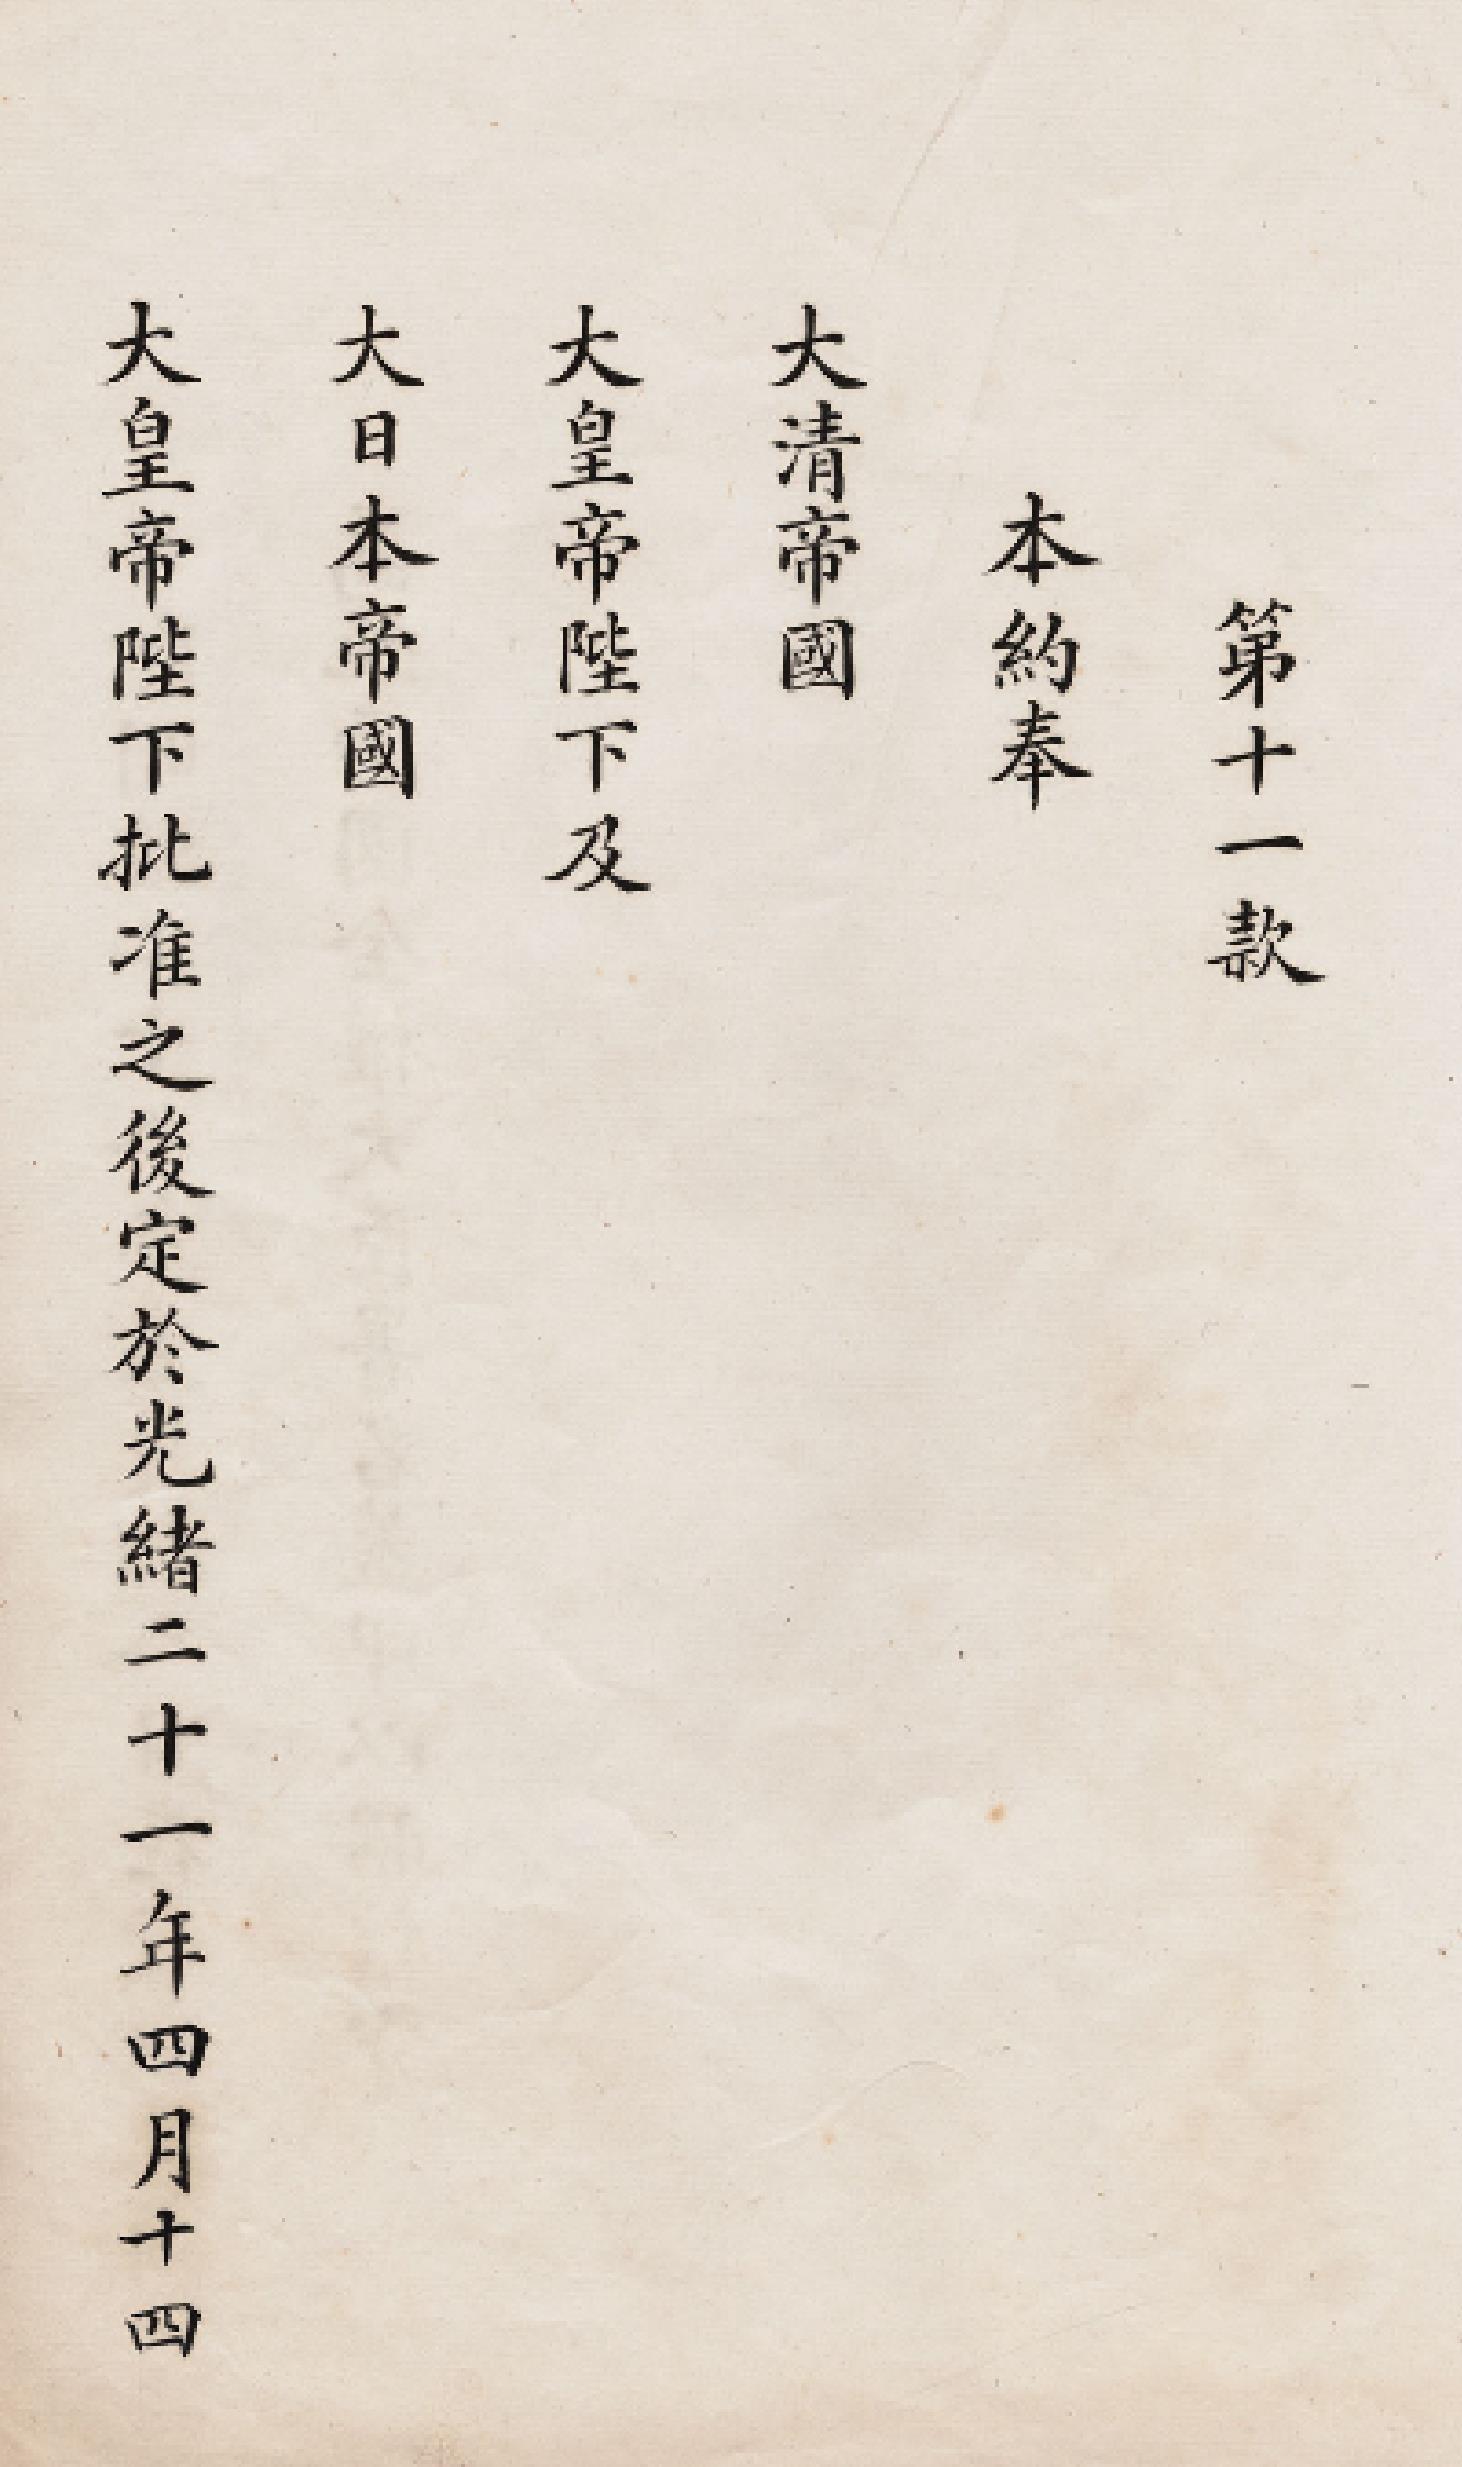 第十一款
本約奉
大清帝國
大皇帝陛下及
大日本帝國
大皇帝陛下批准之後定於光緒二十一年四月十四